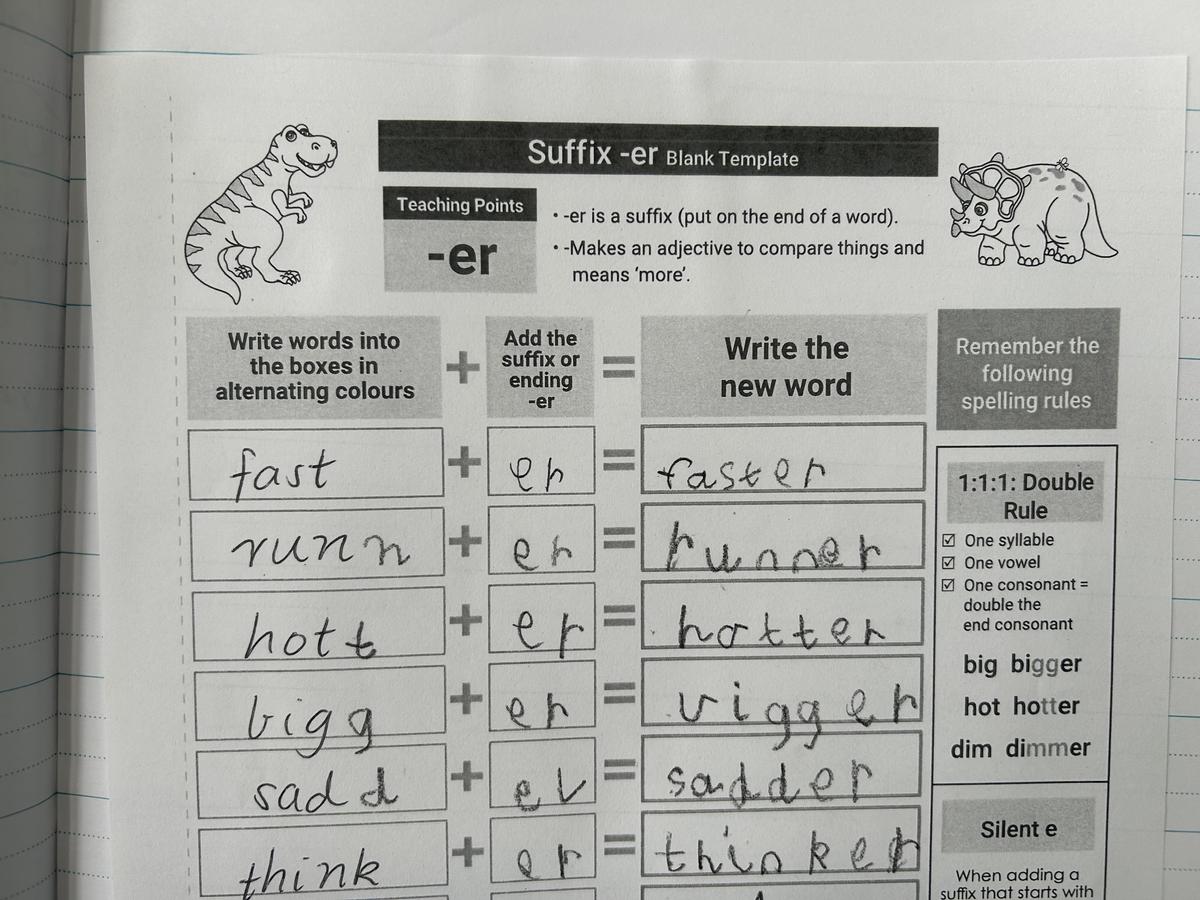 Suffix -er Blank Template
Teaching Points
-er
• -er is a suffix (put on the end of a word).
• -Makes an adjective to compare things and
means 'more'.
Write words into
the boxes in
alternating colours
+
Add the
suffix or
ending
-er
=
Write the
new word
Remember the
following
spelling rules
fast + er = faster
runn + er = runner
hott + er = hotter
bigg + er = vigger
sadd + er = sadder
think + er = thinker
1:1:1: Double
Rule
☑ One syllable
☑ One vowel
☑ One consonant =
double the
end consonant
big bigger
hot hotter
dim dimmer
Silent e
When adding a
suffix that starts with